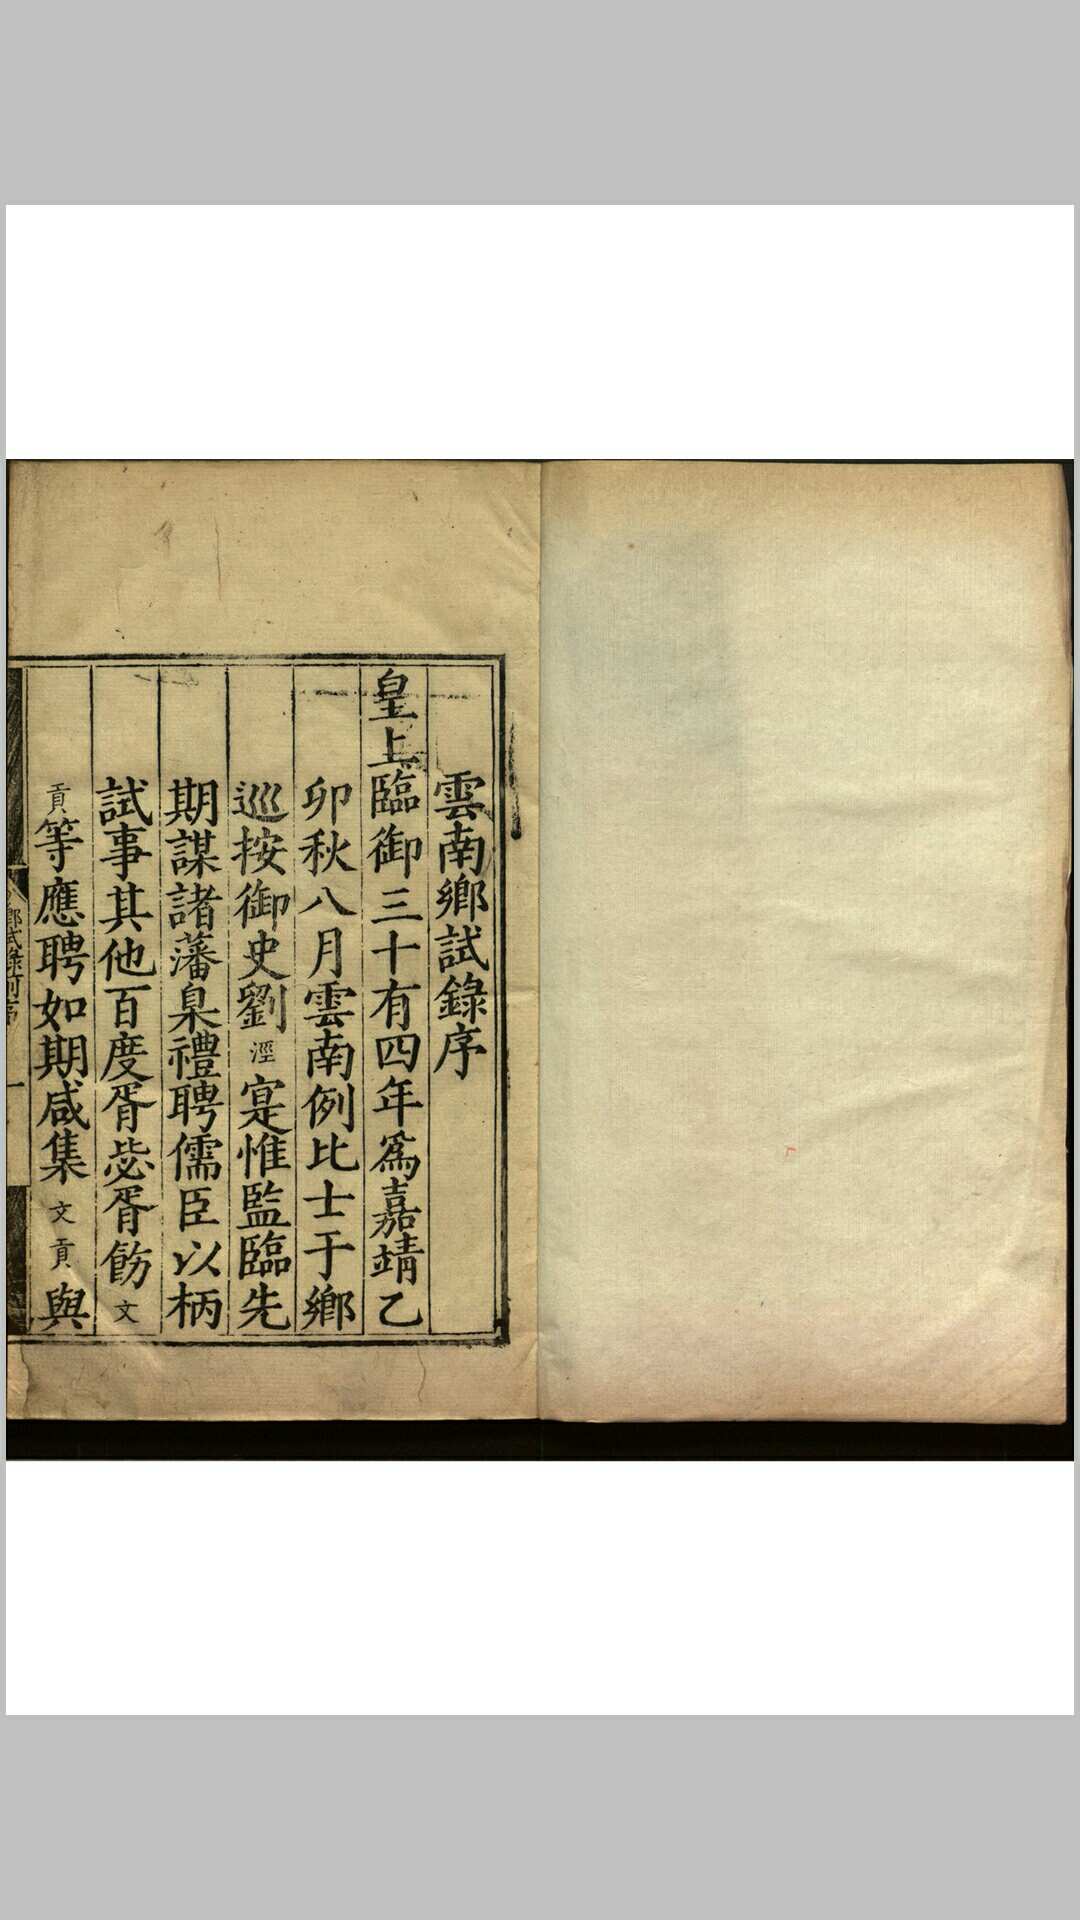 雲南鄉試錄序
皇上臨御三十有四年為嘉靖乙
卯秋八月雲南例比士于鄉
巡按御史劉涇寔惟監臨先
期謀諸藩臬禮聘儒臣以柄
試事其他百度胥毖胥飭文
貢等應聘如期咸集文貢與
鄉試錄前序
一